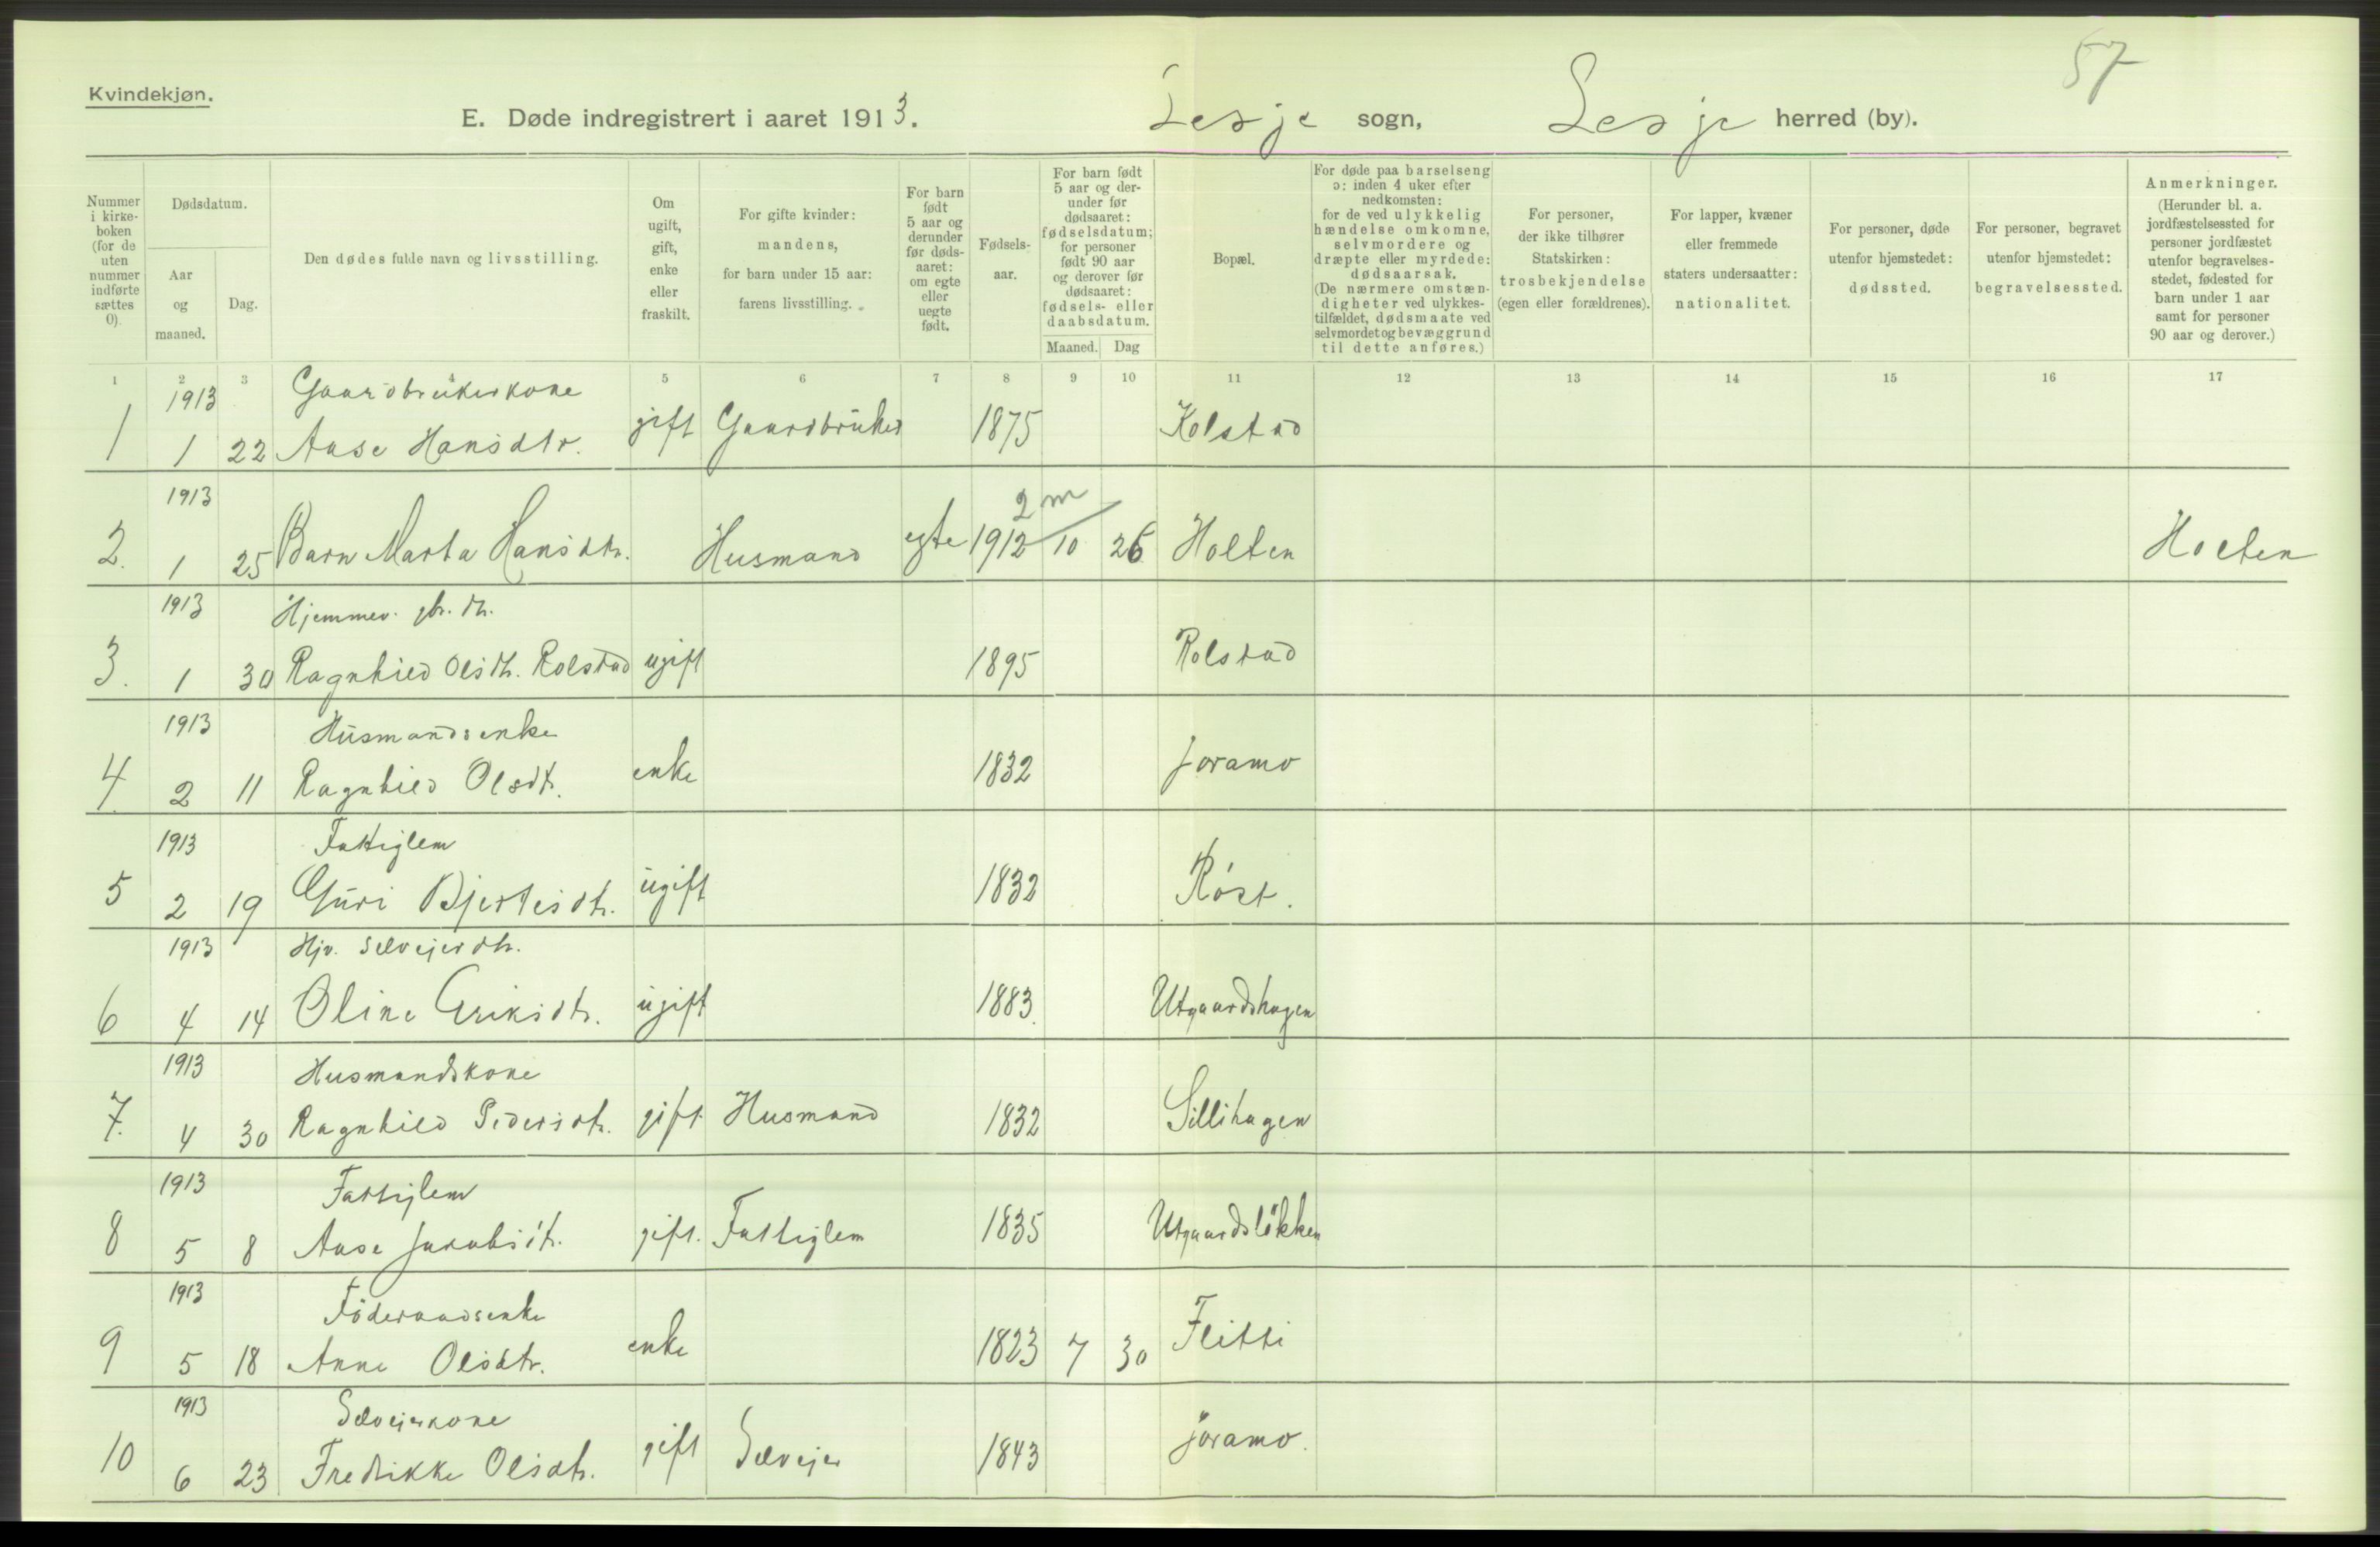 57
Kvindekjøn.
E. Døde indregistrert i aaret 1913. Lesje sogn, Lesje herred (by).
Nummer i kirke-boken (for de uten nummer indførte sættes 0).
Dødsdatum.
Aar og maaned.
Dag.
Den dødes fulde navn og livsstilling.
Om ugift, gift, enke eller fraskilt.
For gifte kvinder: mandens, for barn under 15 aar: farens livsstilling.
For barn født 5 aar og derunder før døds-aaret: om egte eller uegte født.
Fødsels-aar.
For barn født 5 aar og der-under før dødsaaret: fødselsdatum; for personer født 90 aar og derover før dødsaaret: fødsels- eller daabsdatum.
Maaned. Dag
Bopæl.
For døde paa barselseng ɔ: inden 4 uker efter nedkomsten: for de ved ulykkelig hændelse omkomne, selvmordere og dræpte eller myrdede: dødsaarsak. (De nærmere omstæn-digheter ved ulykkes-tilfældet, dødsmaate ved selvmordet og bevæggrund til dette anføres.)
For personer, der ikke tilhører Statskirken: trosbekjendelse (egen eller forældrenes).
For lapper, kvæner eller fremmede staters undersaatter: nationalitet.
For personer, døde utenfor hjemstedet: dødssted.
For personer, begravet utenfor hjemstedet: begravelsessted.
Anmerkninger. (Herunder bl. a. jordfæstelsessted for personer jordfæstet utenfor begravelses-stedet, fødested for barn under 1 aar samt for personer 90 aar og derover.)
1 2 3 4 5 6 7 8 9 10 11 12 13 14 15 16 17
1913 Gaardbrukerkone
1 1 22 Aase Hansdtr. gift Gaardbruker 1875 Kolstad
1913 2 m
2. 1 25 Barn Marta Hansdtr. Husmand egte 1912 10 26 Holten Holten
1913 Hjemmev. gbr. dtr.
3. 1 30 Ragnhild Olsdtr. Rolstad ugift 1895 Rolstad
1913 Husmandsenke
4. 2 11 Ragnhild Olsdtr. enke 1832 Joramo
1913 Fattiglem
5 2 19 Guri Bjertesdtr. ugift 1832 Röst.
1913 Hjv. selveierdtr.
6 4 14 Oline Eriksdtr. ugift 1883. Utgaardshagen
1913 Husmandskone
7. 4 30 Ragnhild Pedersdtr. gift. Husmand 1832 Sillihagen
1913 Fattiglem
8 5 8 Aase Jakobsdtr. gift. Fattiglem 1835 Utgaardsløkken
1913 Föderaadsenke
9 5 18 Anne Olsdtr. enke 1823 7 30 Flitti
1913 Selveierkone
10 6 23 Fredrikke Olsdtr. gift Selveier 1843 Joramo.